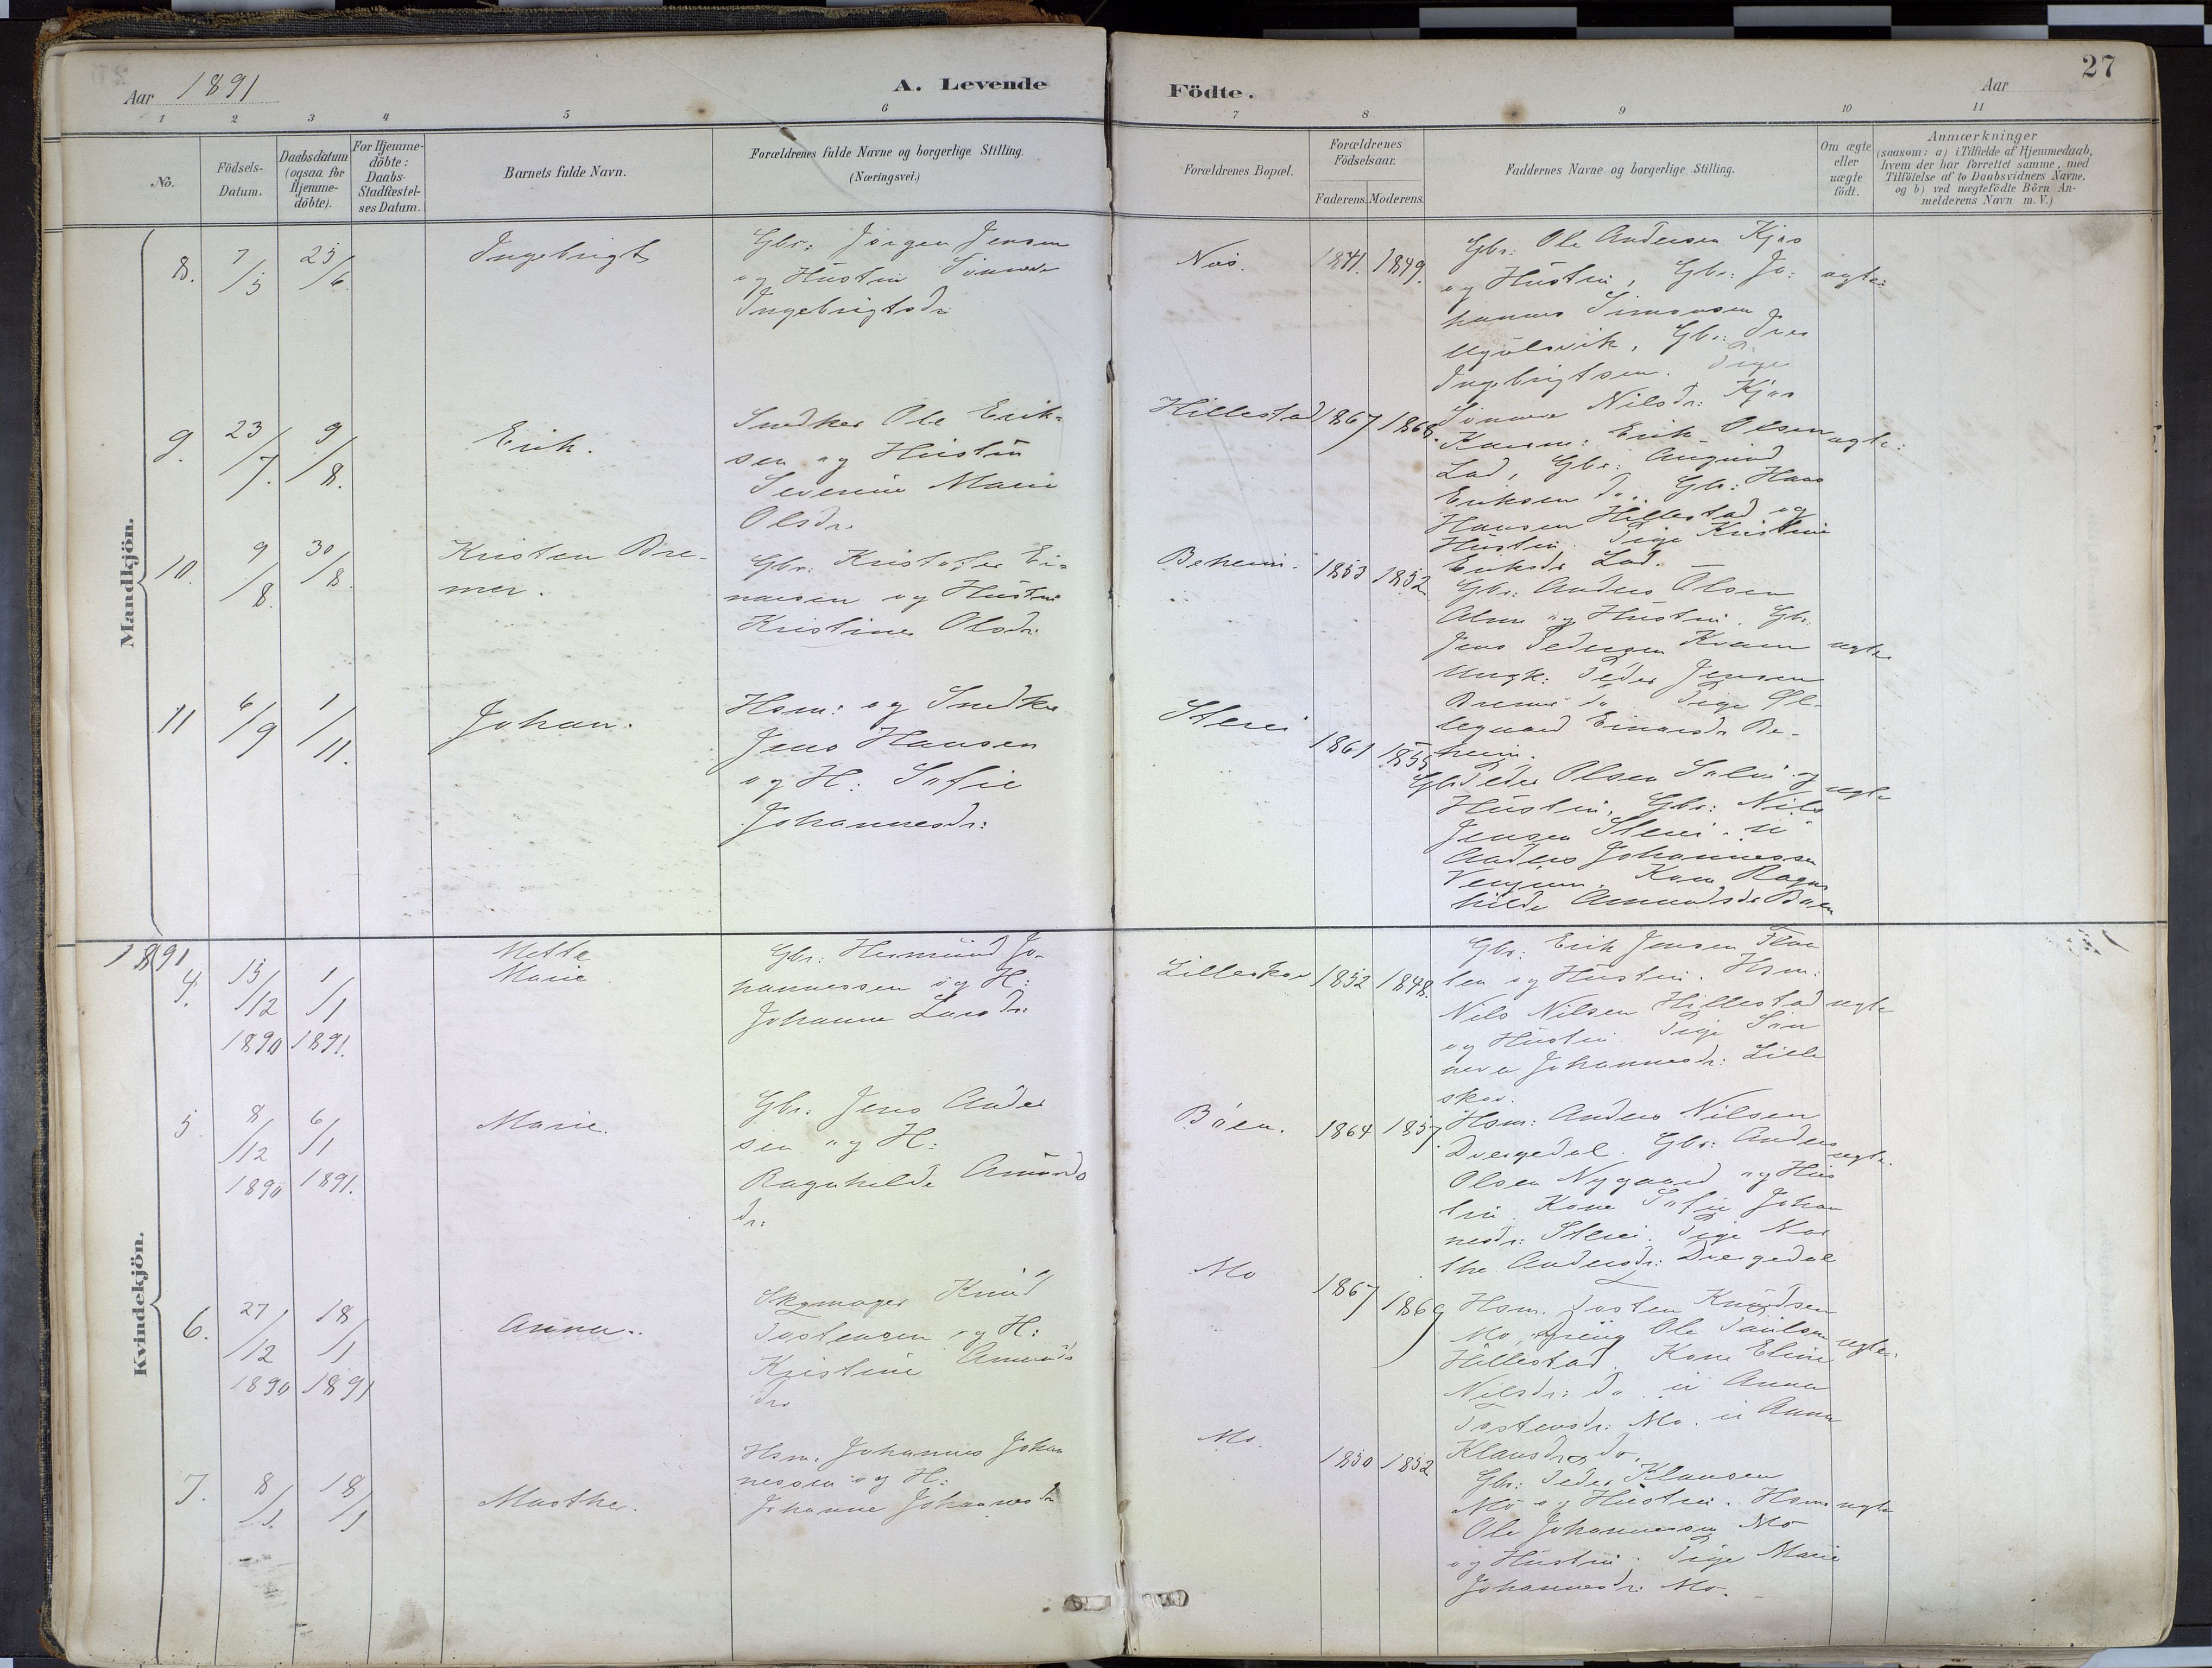 Aar 1891
A. Levende
Födte.
Aar
27
1 2 3 4 5 6 7 8 9 10 11
No.
Födsels-
Datum.
Daabsdatum
(ogsaa for
Hjemme-
döbte).
For Hjemme-
döbte:
Daabs-
Stadfæstel-
ses Datum.
Barnets fulde Navn.
Forældrenes fulde Navne og borgerlige Stilling.
(Næringsvei.)
Forældrenes Bopæl.
Forældrenes
Födselsaar.
Faderens. Moderens.
Faddernes Navne og borgerlige Stilling.
Om ægte
eller
uægte
födt.
Anmærkninger
(saasom: a) i Tilfælde af Hjemmedaab,
hvem der har forrettet samme, med
Tilföielse af to Daabsvidners Navne,
og b) ved uægtefödte Börn An-
melderens Navn m.V.)
Mandkjön.
8. 7/5 25/6. Ingebrigt
Gbr: Jørgen Jensen
og Hustru Sønneve
Ingebrigtsdr:
Nös. 1841. 1849.
Gbr: Ole Andersen Kjøs
og Hustru, Gbr: Jo-
hannes Simonsen
Gbr: Ives
Ingebrigtsen. Pige
Sønneve Nilsdr: Kjøs
ægte:
9. 23/7. 9/8. Erik.
Snedker Ole Erik-
sen og Hustru
Severine Marie
Olsdr.
Hillestad 1867 1868.
Kaarm: Erik Olsen
Lad, Gbr: Amund
Eriksen do. Gbr: Hans
Hansen Hillestad og
Hustru. Pige Kristine
Eriksdr Lad.
ægte:
10. 9/8. 30/8. Kristen Bre-
mer.
Gbr: Kristofer Ei-
narsen og Hustru
Kristine Olsdr:
Beheim. 1853 1852
Gbr: Anders Olsen
Alme og Hustru. Gbr.
Jens Pedersen Kvam
Ungk: Peder Jensen
Bremer do Pige Ol-
legaard Einarsdr Be-
heim.
ægte
11 6/9 1/11. Johan.
Hsm: og Snedker
Jens Hansen
og H: Sofie
Johannesdr:
Sterei 1861 1855
Gbr Peder Olsen Solin og
Hustru, Gbr: Nils
Jensen Sterei. U
Anders Johannessen
Venjum. Kone Ragn
hilde Amundsdr Böen
ægte
1891
Kvindekjön.
4. 15/12 1890 1/1 1891. Mette
Marie
Gbr: Hermund Jo-
hannessen og H:
Johanne Larsdr:
Lilleskor 1852 1848.
Gbr: Erik Jensen
og Hustru. Hsm:
Nils Nilsen Hillestad
og Hustru. Pige Søn
neve Johannesdr: Lille
skor.
ægte
5 8/12 1890 6/1 1891. Marie.
Gbr: Jens Ander
sen og H:
Ragnhilde Amunds
dr:
Böen. 1864 1857.
Hsm: Anders Nilsen
Dvergedal. Gbr: Anders
Olsen Nygaard og Hus
tru. Kone Sofie Johan
nesdr: Sterei. Pige Mar
the Andersdr: Dvergedal
ægte.
6. 27/12 1890 18/1 1891 Anna.
Skomager Knud
Tostensen og H:
Kristine Amunds
dr.
Mo 1867 1869
Hsm. Tosten Knudsen
Mo, Dreng Ole Paulsen
Hillestad. Kone Eline
Nilsdr: do. U Anna
Tostensdr: Mo. U Anna
Klausdr: do.
ægte.
7. 8/1. 18/1 Marthe.
Hsm. Johannes Johan
nessen og H:
Johanne Johannesdr
Mo. 1850 1852
Gbr: Peder Klausen
Mo og Hustru. Hsm:
Ole Johannessen Mo
og Hustru. Pige Marie
Johannesdr: Mo.
ægte